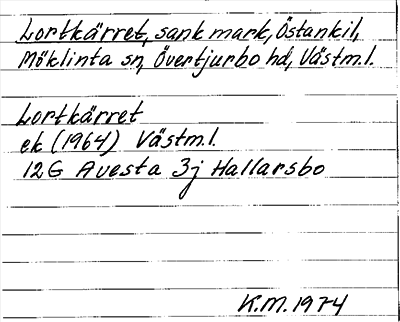 Lortkärret, sank mark, Östankil,
Möklinta sn, Övertjurbo hd, Västm.l.
Lortkärret
ek (1964) Västm.l.
12G Avesta 3j Hallarsbo
K.M. 1974